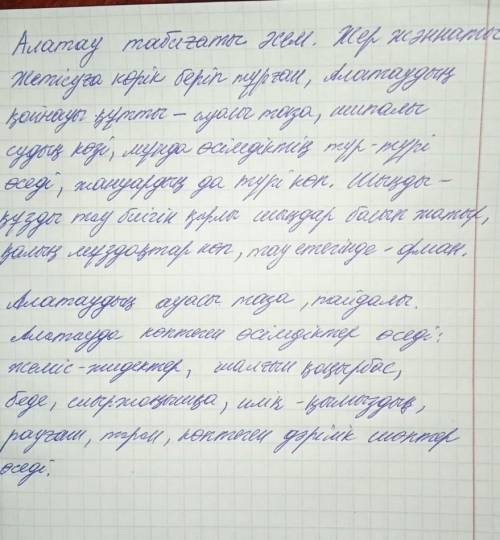 Алатау табиғаты әсем. Жер жәннаты
Жетісуға көрік беріп тұрған, Алатаудың
қойнауы құтты - ауасы таза, шипалы
судың көзі, мұнда өсімдіктің түр-түрі
өседі, жануардың да түрі көп. Шыңды-
құзды тау биігін қарлы шыңдар басып жатыр,
қалың мұздақтар көп, тау етегінде - орман.
Алатаудың ауасы таза, пайдалы.
Алатауда көптеген өсімдіктер өседі:
жеміс-жидектер, шалғын қоңырбас,
беде, сиыржоңышқа, итқымыздық,
рауғаш, терен, көптеген дәрілік шөптер
өседі.